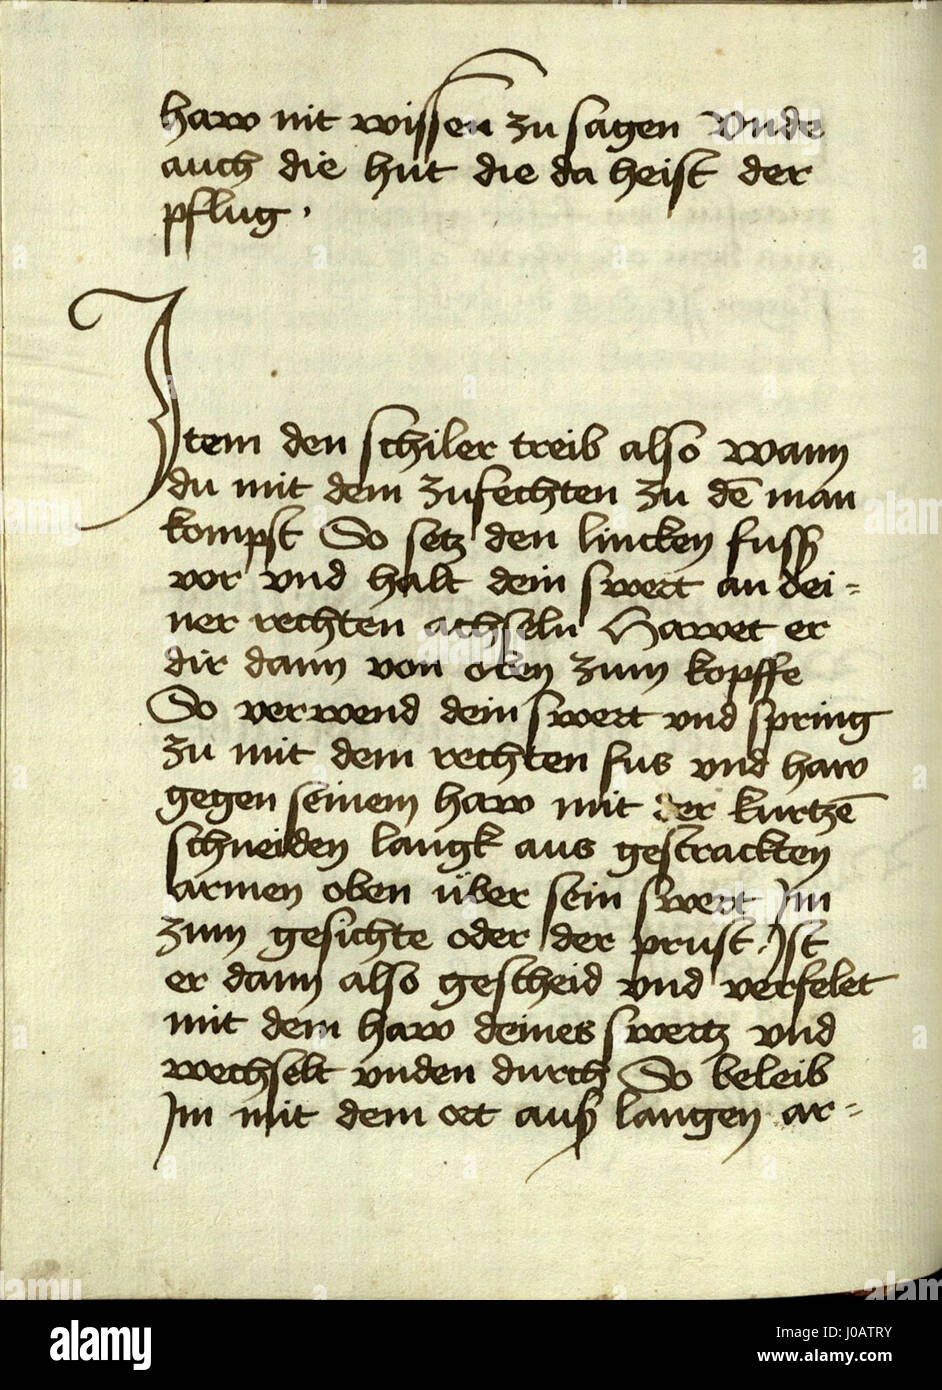 haw nit wissen zu sagen Vnde
auch die hut die da heist der
pflug .
Item den schiler treib also wann
du mit dem zufechten zu dē man
kompst So setz den lincken fuss
vor vnd halt dein swert an dei=
ner rechten achseln Hawet er
dir dann von oben zum kopffe
So verwend dein swert vnd spring
zu mit dem rechten fus vnd haw
gegen seinem haw mit der kurtzē
schneiden langk aus gestrackten
armen oben über sein swert Im
zum gesichte oder der prust . Ist
er dann also gescheid vnd verfelet
mit dem haw deines swertz vnd
wechselt vnden durch So beleib
Im mit dem ort auß langen ar=
alamy
Image ID: J0ATRY
www.alamy.com